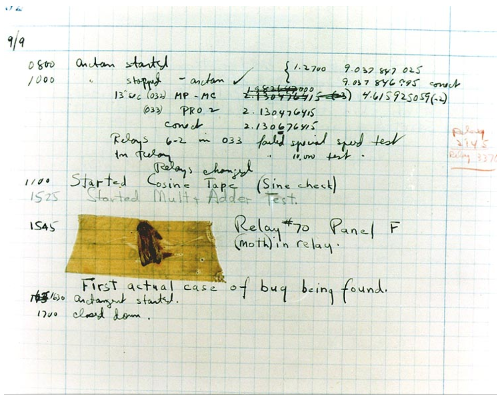 9/9
0800 Antan started { 1.2700 9.037 847 025
1000 " stopped - antan ✓ 9.037 846 995 correct
13"uc (032) MP - MC 2.130476415 4.615925059(-2)
(033) PRO 2 2.130476415
correct 2.130676415
Relays 6-2 in 033 failed special speed test
in Relay " 10,000 test .
Relay
2145
Relay 3370
Relays changed
1100 Started Cosine Tape (Sine check)
1525 Started Mult + Adder Test.
1545 Relay #70 Panel F
(Moth) in relay.
First actual case of bug being found.
1630 antangent started.
1700 closed down.